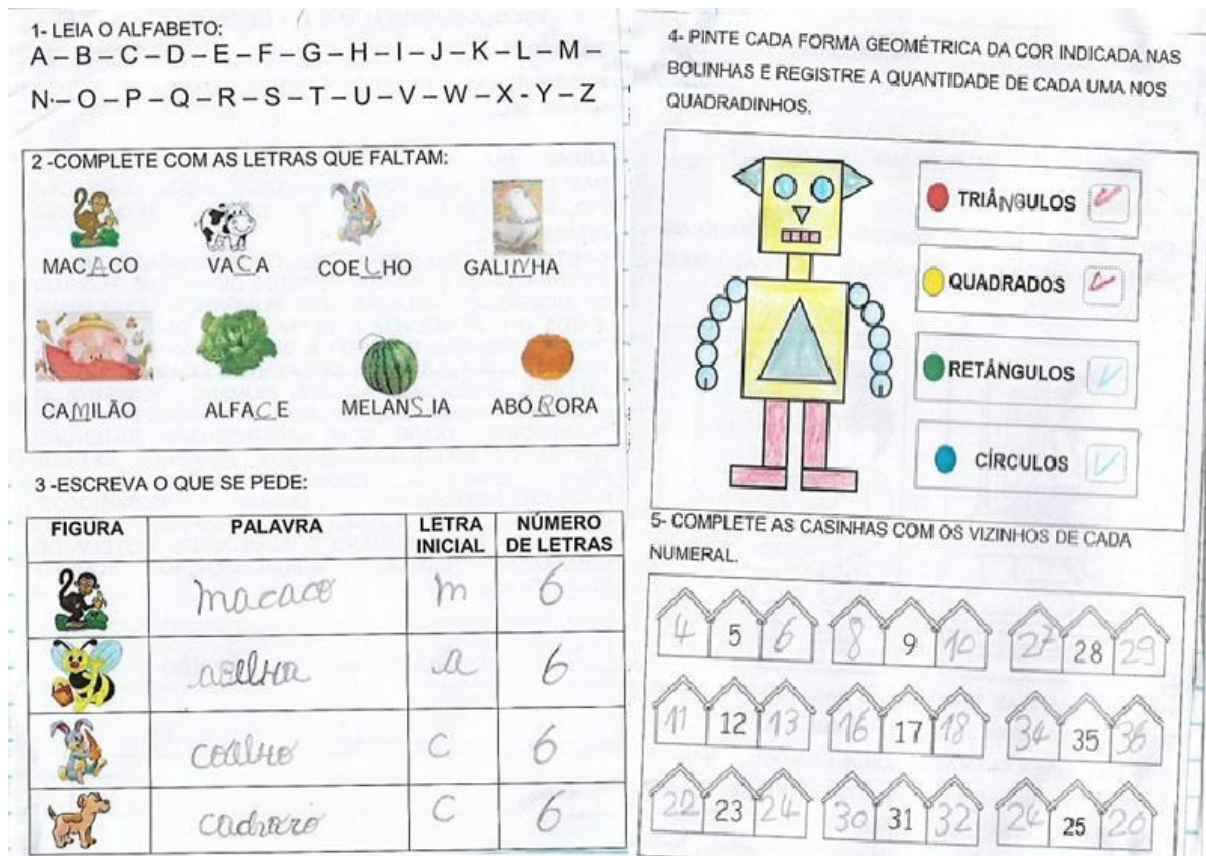 1- LEIA O ALFABETO:
A – B – C – D – E – F – G – H – I – J – K – L – M –
N – O – P – Q – R – S – T – U – V – W – X - Y – Z
2 -COMPLETE COM AS LETRAS QUE FALTAM:
MACACO VACA COELHO GALINHA
CAMILÃO ALFACE MELANSIA ABÓRORA
3 -ESCREVA O QUE SE PEDE:
FIGURA PALAVRA LETRA INICIAL NÚMERO DE LETRAS
macaco m 6
a 6
coelho c 6
c 6
4- PINTE CADA FORMA GEOMÉTRICA DA COR INDICADA NAS
BOLINHAS E REGISTRE A QUANTIDADE DE CADA UMA NOS
QUADRADINHOS.
TRIÂNGULOS
QUADRADOS
RETÂNGULOS
CÍRCULOS
5- COMPLETE AS CASINHAS COM OS VIZINHOS DE CADA
NUMERAL.
4 5 6 8 9 10 27 28 29
11 12 13 16 17 18 34 35 36
22 23 24 30 31 32 24 25 26